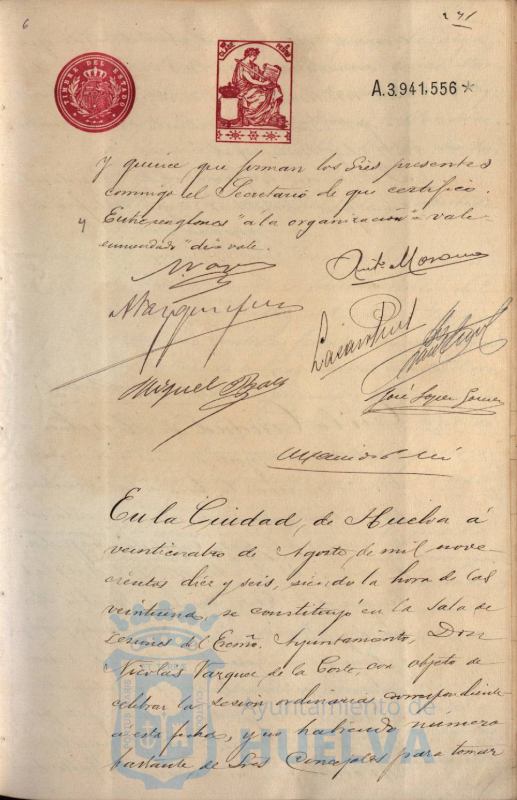 6
271
TIMBRE DEL ESTADO
A.3.941,556*
y quince que firman los Sres presentes
conmigo el Secretario de que certifico.
Entrerenglones "á la organización" vale
enmendado "dia vale.
Antº Moreno
Miguel
José Lopez Gomez
En la Ciudad, de Huelva á
veinticuatro de Agosto, de mil nove
cientos diez y seis, siendo la hora de las
veintiuna, se constituyó en la Sala de
Sesiones del Excmo. Ayuntamiento, Don
Nicolás Vazquez de la Corte, con objeto de
celebrar la sesión ordinaria correspondiente
a esta fecha, y no habiendo número
bastante de Sres Concejales para tomar
Ayuntamiento de
HUELVA